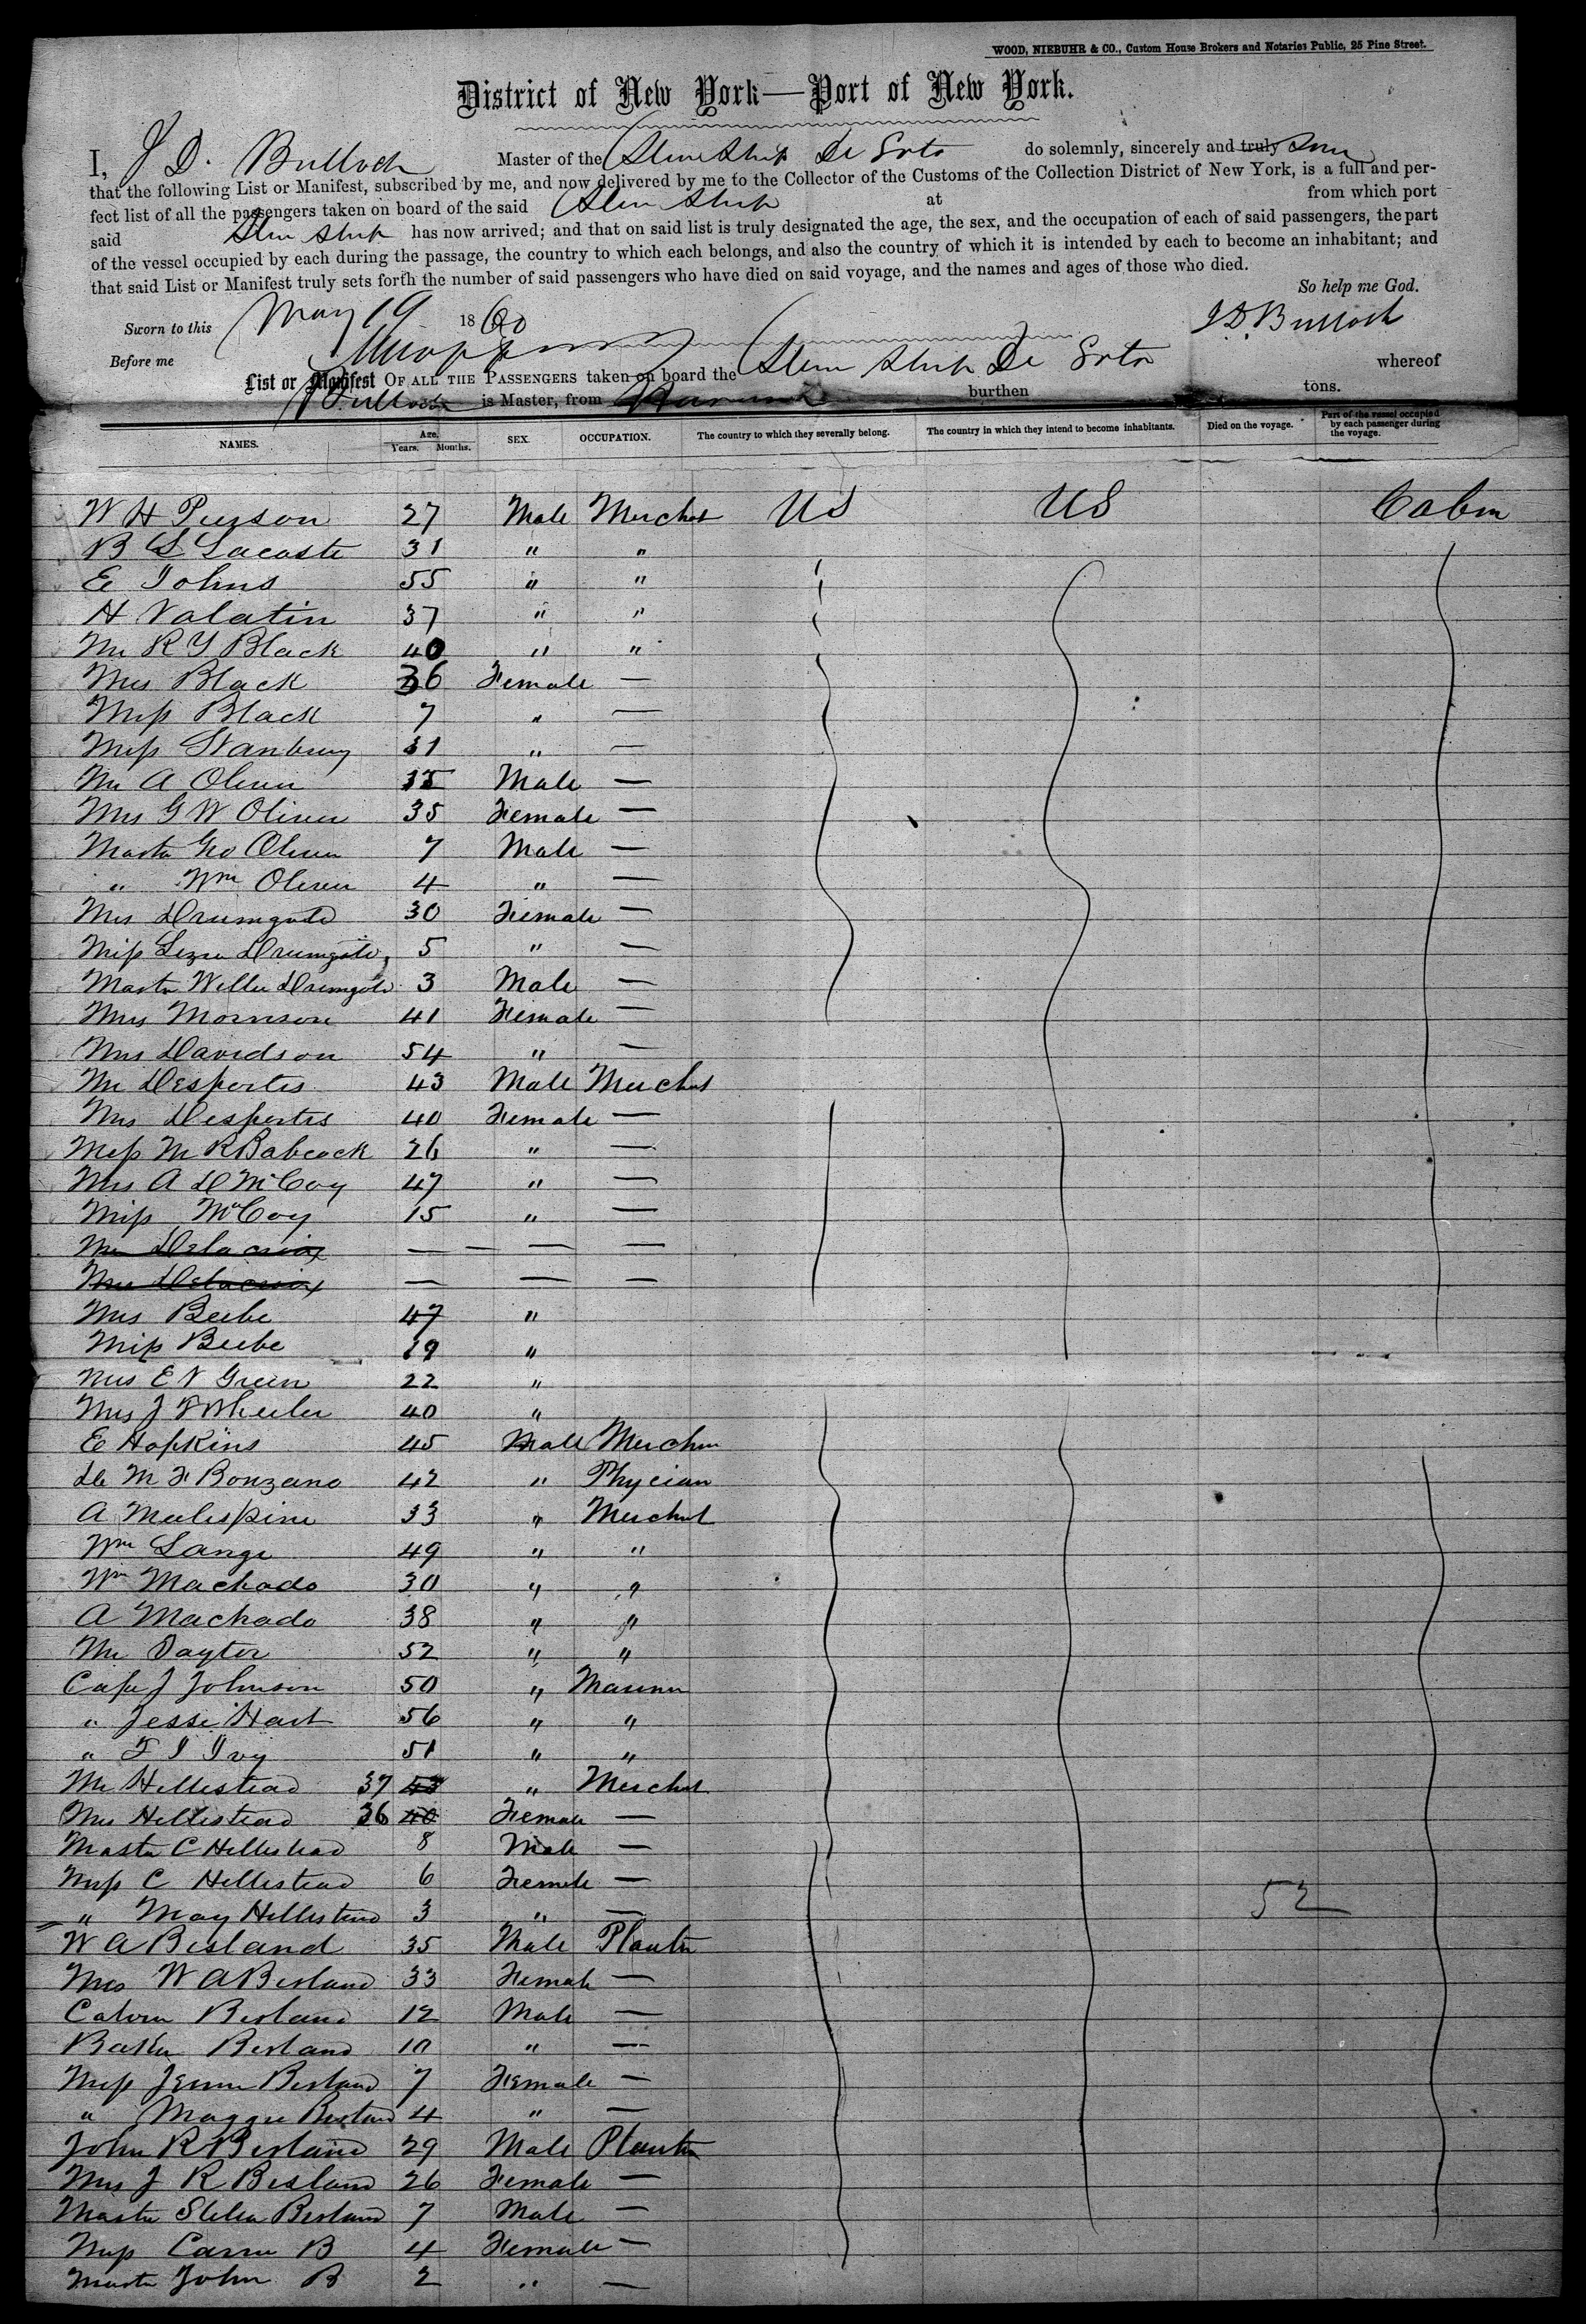 WOOD, NIEBUHR & CO., Custom House Brokers and Notaries Public, 25 Pine Street.
District of New York—Port of New York.
I, J D. Bulloch Master of the Steam Ship De Soto do solemnly, sincerely and truly
that the following List or Manifest, subscribed by me, and now delivered by me to the Collector of the Customs of the Collection District of New York, is a full and per-
fect list of all the passengers taken on board of the said Steam Ship at from which port
said Steam Ship has now arrived; and that on said list is truly designated the age, the sex, and the occupation of each of said passengers, the part
of the vessel occupied by each during the passage, the country to which each belongs, and also the country of which it is intended by each to become an inhabitant; and
that said List or Manifest truly sets forth the number of said passengers who have died on said voyage, and the names and ages of those who died.
So help me God.
Sworn to this May 19 1860 J.D. Bulloch
Before me
List or Manifest OF ALL THE PASSENGERS taken on board the Steam Ship De Soto whereof
Bulloch is Master, from Havana burthen tons.
NAMES. Age. Years. Months. SEX. OCCUPATION. The country to which they severally belong. The country in which they intend to become inhabitants. Died on the voyage. Part of the vessel occupied by each passenger during the voyage.
W H Pierson 27 Male Merchat US US Cabin
B S Lacoste 31 " "
E Johns 55 " "
H Valatin 37 " "
Mr R Y Black 40 " "
Mrs Black 36 Female —
Miss Black 7 " —
Miss Stanbury 31 " —
Mr A Oliver 35 Male —
Mrs G W Oliver 35 Female —
Master Geo Oliver 7 Male —
" Wm Oliver 4 " —
Mrs Drumgold 30 Female —
Miss Lizzie Drumgold 5 " —
Master Willie Drumgold 3 Male —
Mrs Morrison 41 Female —
Mrs Davidson 54 " —
Mr Desportes 43 Male Merchat
Mrs Desportes 40 Female —
Miss M R Babcock 26 " —
Mrs A D McCoy 47 " —
Miss McCoy 15 " —
Mr Delacroix — — — —
Mrs Delacroix — — —
Mrs Beebe 47 "
Miss Beebe 19 "
Mrs E V Green 22 "
Mrs J F Wheeler 40 "
E Hopkins 45 Male Merchan
Dr M F Bonzano 42 " Phycian
A Malespine 33 " Merchat
Wm Lange 49 " "
Wm Machado 30 " "
A Machado 38 " "
Mr Taytor 52 " "
Capt J Johnson 50 " Mariner
" Jesse Hart 56 " "
" F I Ivy 51 " "
Mr Hellestead 37 43 " Merchat
Mrs Hellestead 36 40 Female —
Master C Hellestead 8 Male —
Miss C Hellestead 6 Female — 52
" May Hellestead 3 " —
W A Bisland 35 Male Planter
Mrs W A Bisland 33 Female —
Calvin Bisland 12 Male —
Baker Bisland 10 " —
Miss Jennie Bisland 7 Female —
" Maggie Bisland 4 " —
John R Bisland 29 Male Planter
Mrs J R Bisland 26 Female —
Master Bisland 7 Male —
Miss Carrie B 4 Female —
Master John B 2 " —